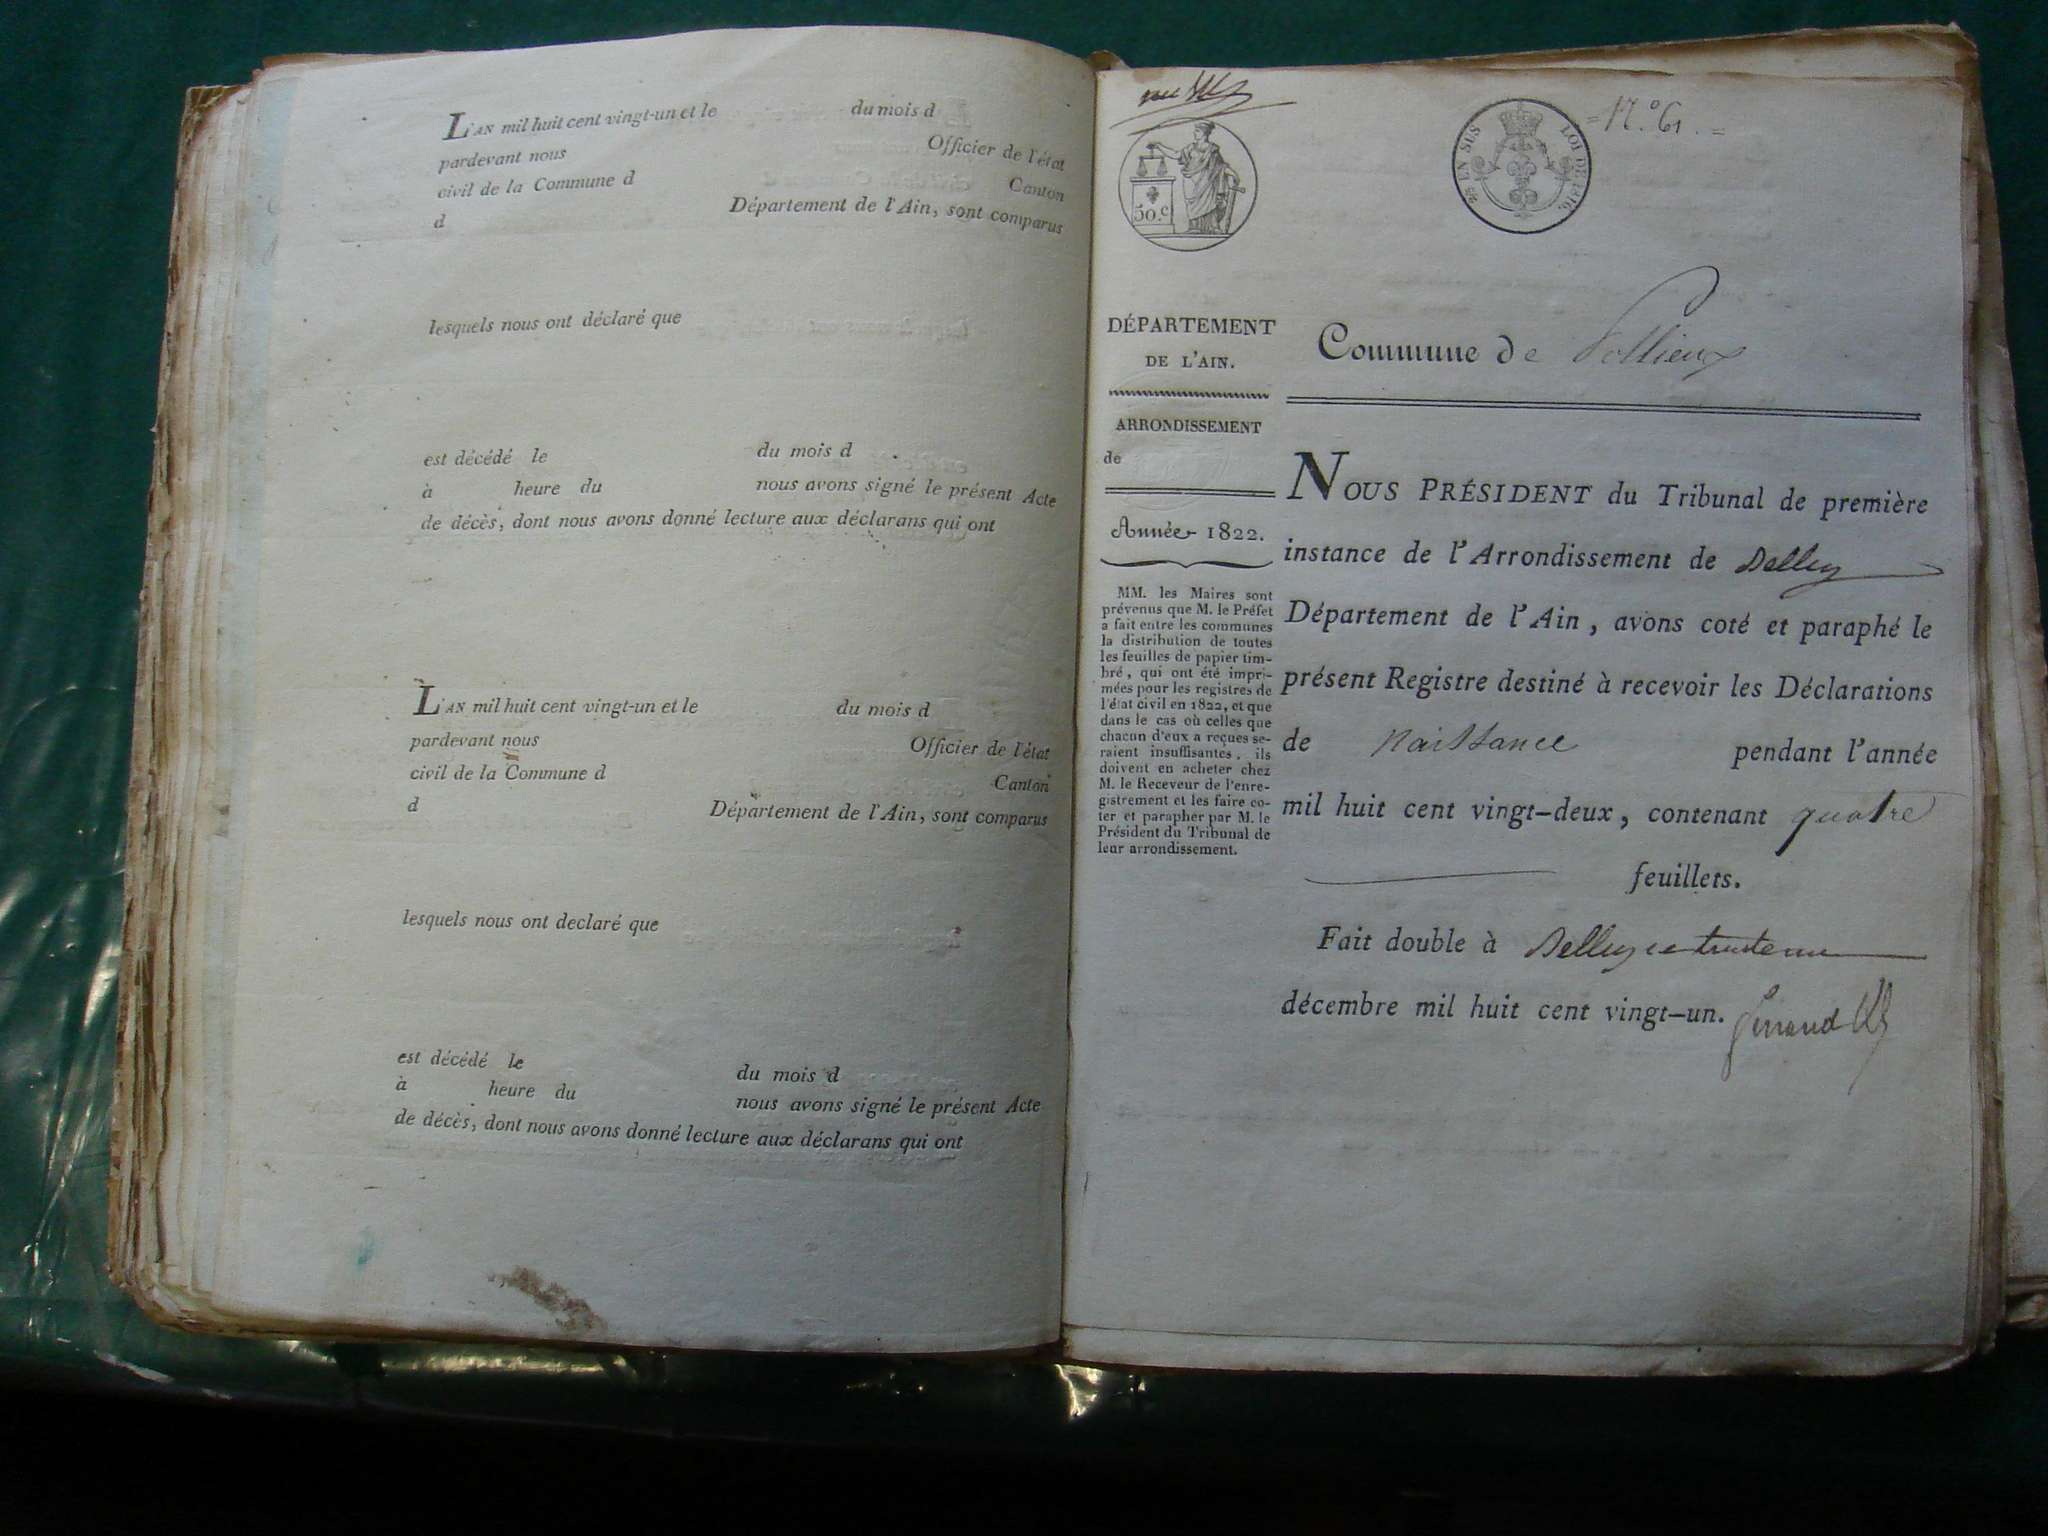 L'AN mil huit cent vingt-un et le du mois d
pardevant nous Officier de l'état
civil de la Commune d Canton
d Département de l'Ain, sont comparus
lesquels nous ont déclaré que
est décédé le du mois d
à heure du nous avons signé le présent Acte
de décès, dont nous avons donné lecture aux déclarans qui ont
L'AN mil huit cent vingt-un et le du mois d
pardevant nous Officier de l'état
civil de la Commune d Canton
d Département de l'Ain, sont comparus
lesquels nous ont declaré que
est décédé le du mois d
à heure du nous avons signé le présent Acte
de décès, dont nous avons donné lecture aux déclarans qui ont
50.c
EN SUS LOI DE 1816.
DÉPARTEMENT
DE L'AIN.
ARRONDISSEMENT
de
Année 1822.
MM. les Maires sont
prévenus que M. le Préfet
a fait entre les communes
la distribution de toutes
les feuilles de papier tim-
bré, qui ont été impri-
mées pour les registres de
l'état civil en 1822, et que
dans le cas où celles que
chacun d'eux a reçues se-
raient insuffisantes, ils
doivent en acheter chez
M. le Receveur de l'enre-
gistrement et les faire co-
ter et parapher par M. le
Président du Tribunal de
leur arrondissement.
Commune de Pollieux
NOUS PRÉSIDENT du Tribunal de première
instance de l'Arrondissement de Belley
Département de l'Ain, avons coté et paraphé le
présent Registre destiné à recevoir les Déclarations
de Naissance pendant l'année
mil huit cent vingt-deux, contenant quatre
feuillets.
Fait double à Belley le trente un
décembre mil huit cent vingt-un.